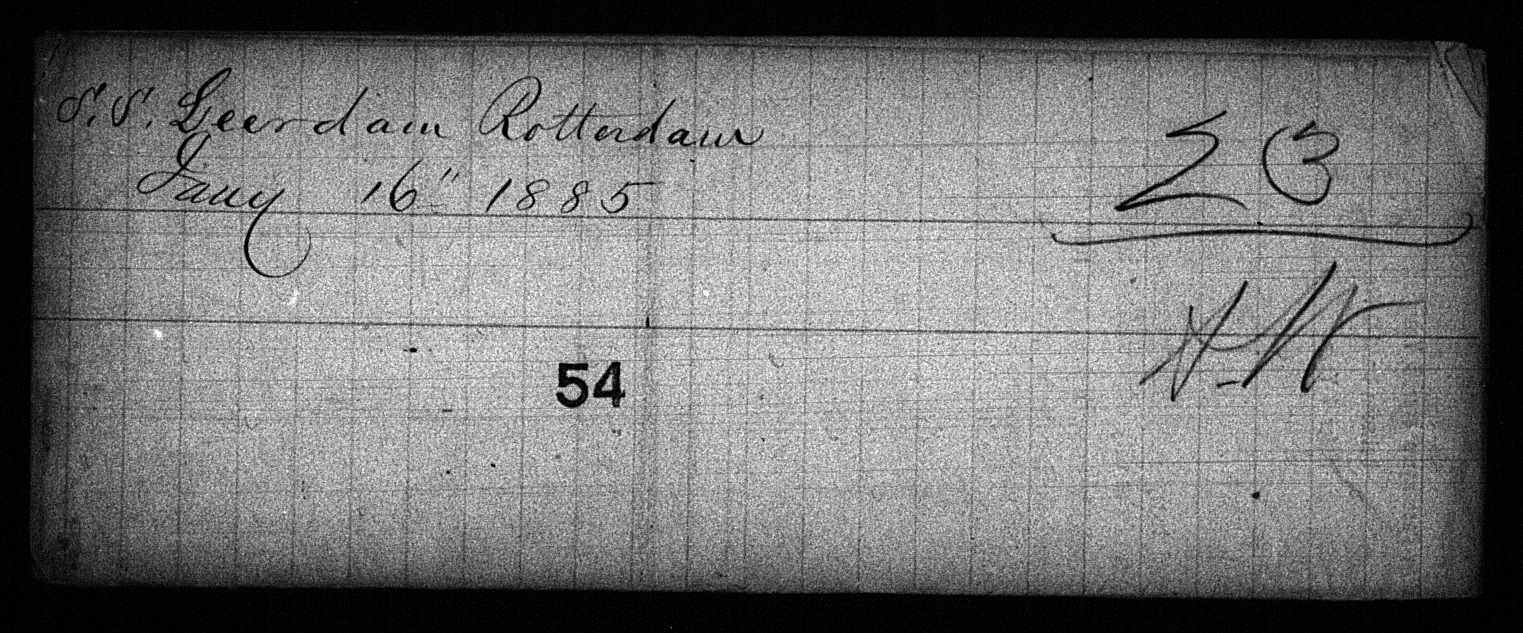 S.S. Leerdam Rotterdam
Jany 16" 1885
23
54